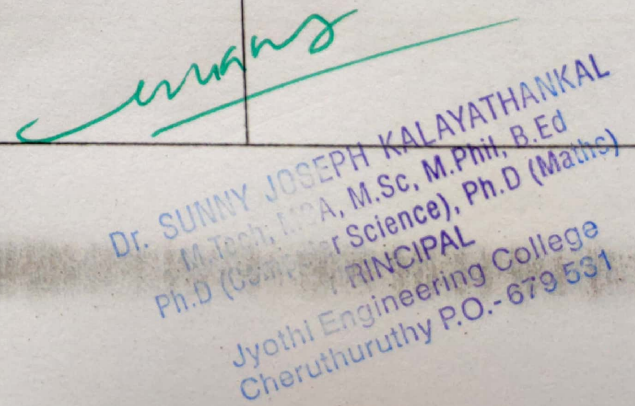 Dr. SUNNY JOSEPH KALAYATHANKAL
M.Tech, MCA, M.Sc, M.Phil, B.Ed
Ph.D (Computer Science), Ph.D (Maths)
PRINCIPAL
Jyothi Engineering College
Cheruthuruthy P.O.- 679 531